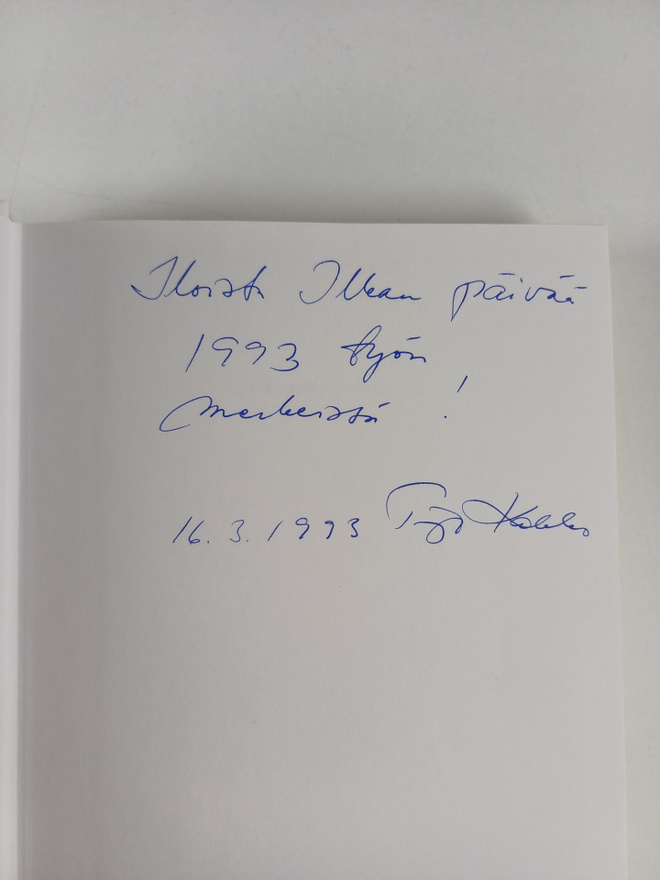 Iloista Ilkan päivää
1993 työn
merkeissä !
16.3.1993